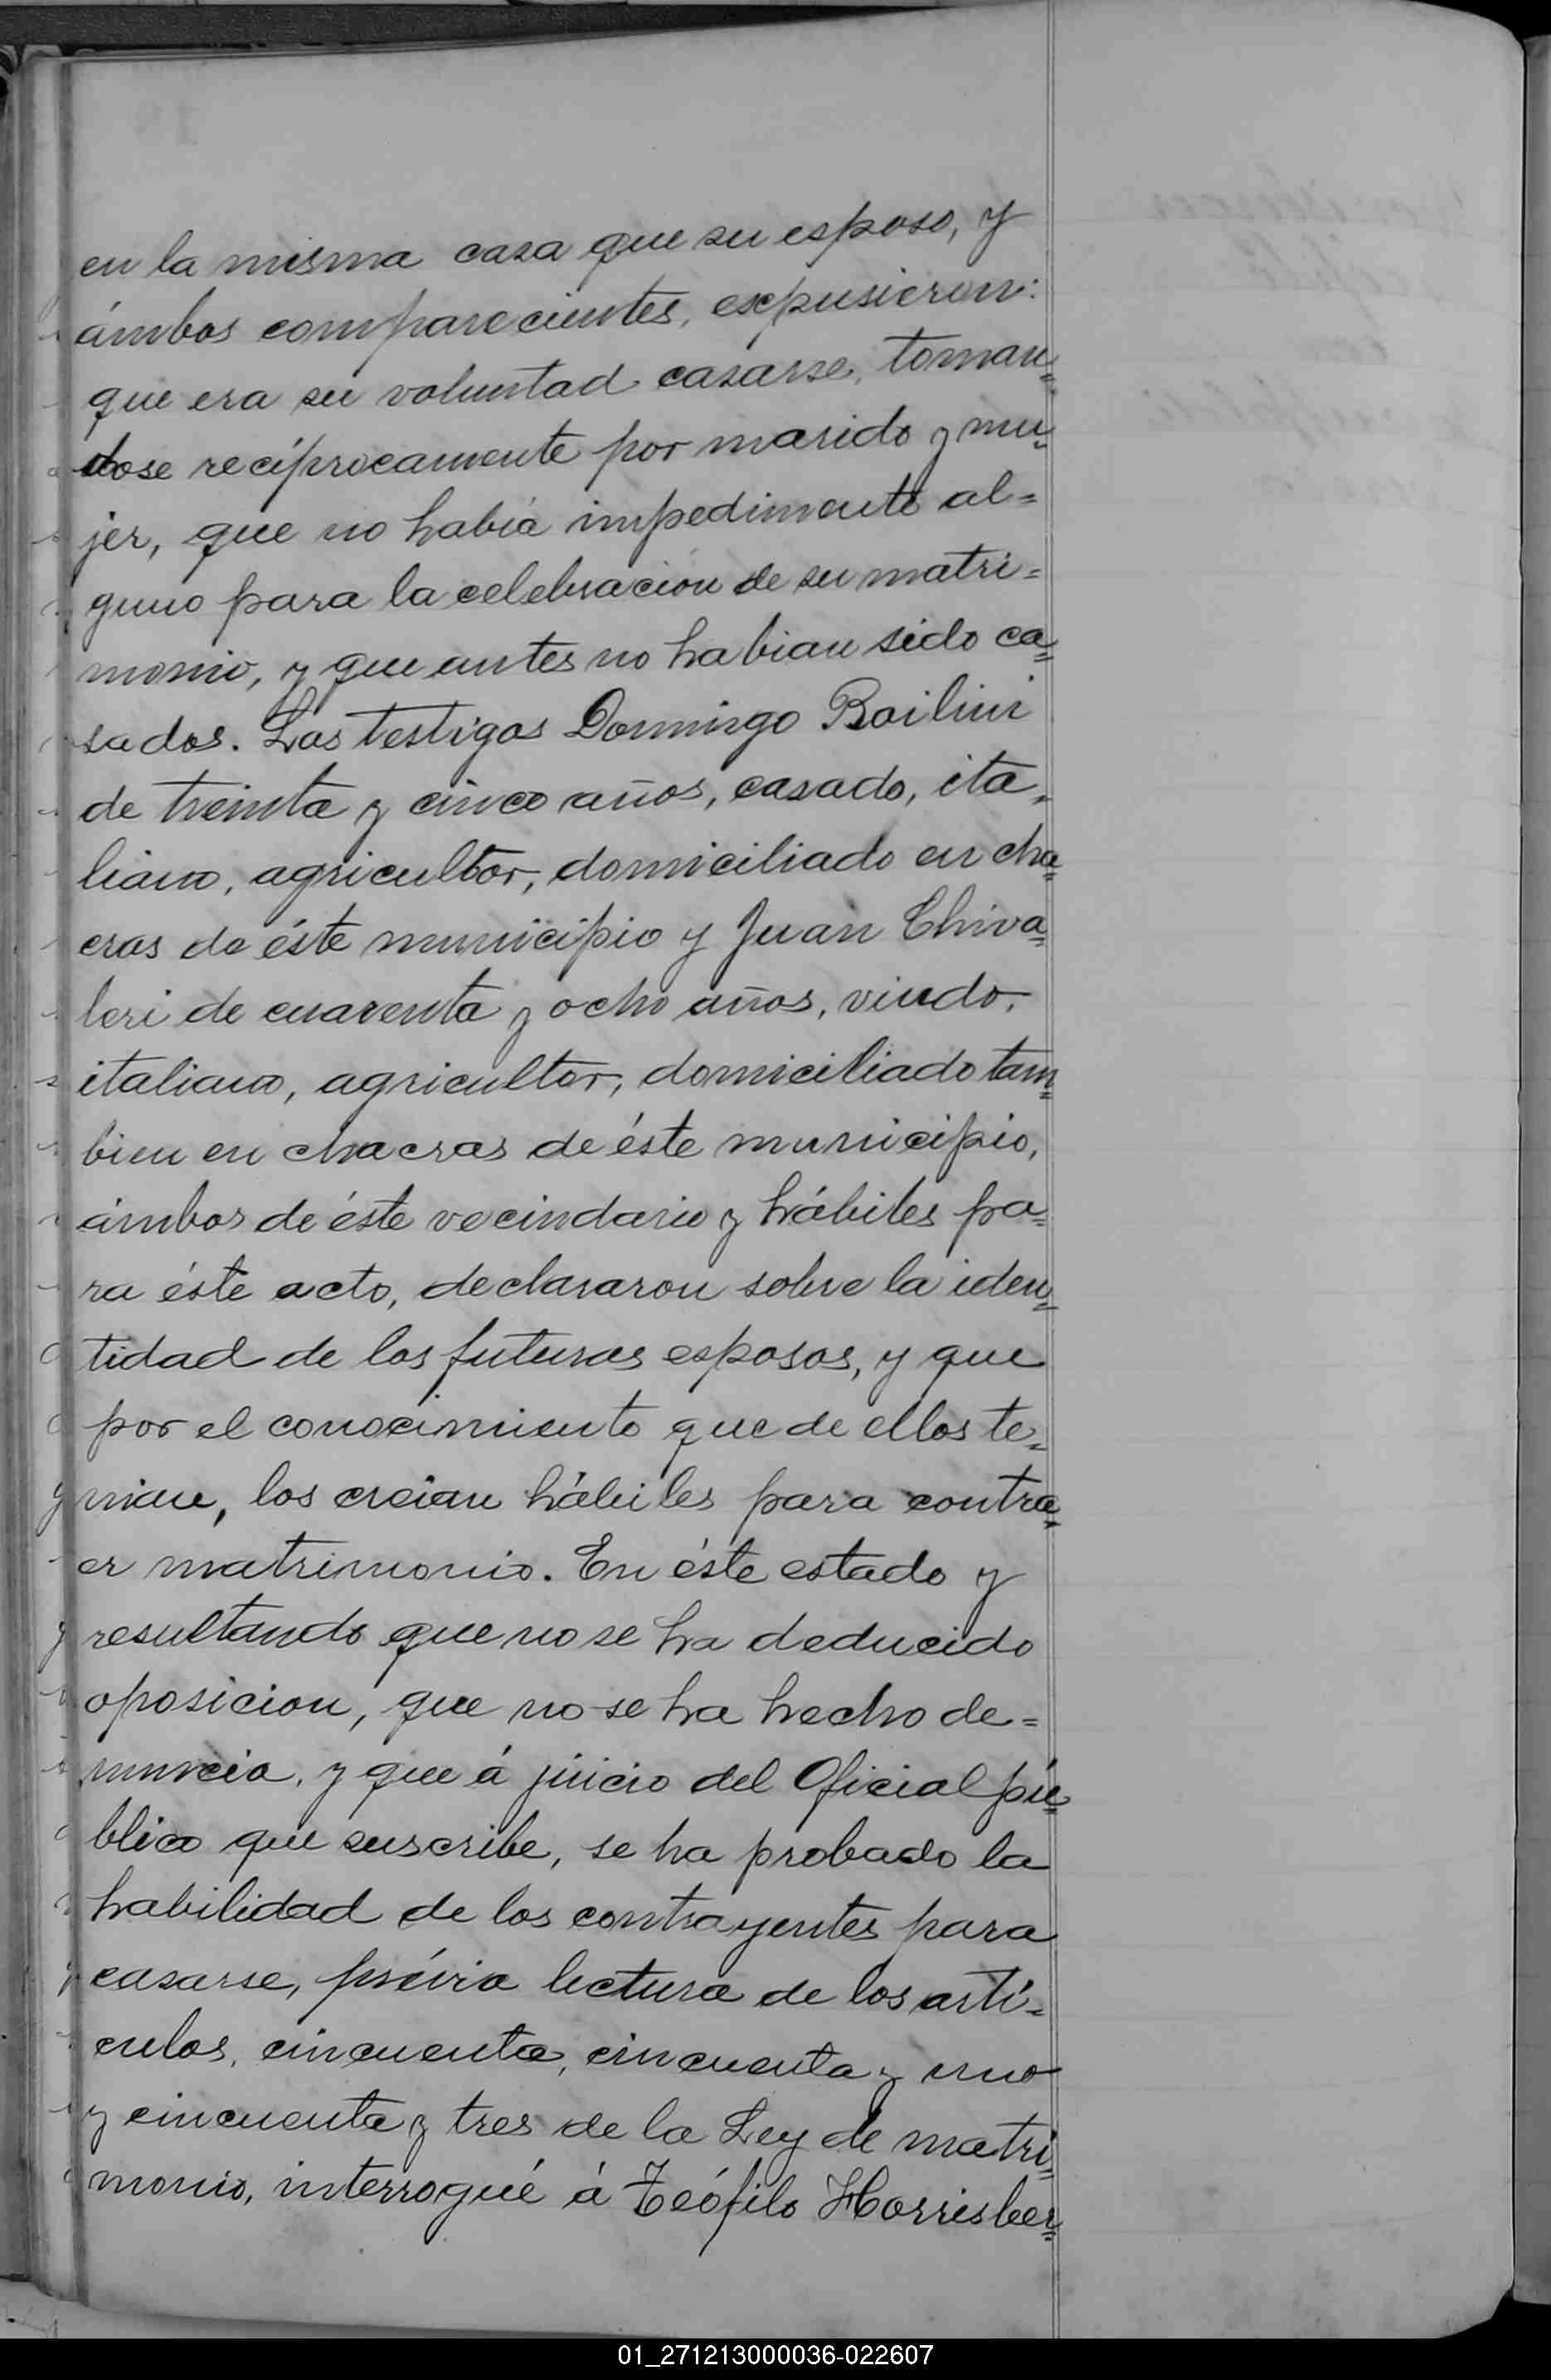 en la misma casa que su esposo, y
ámbos comparecientes, expusieron:
que era su voluntad casarse, toman=
dose recíprocamente por marido y mu=
jer, que no había impedimento al=
guno para la celebración de su matri=
monio, y que antes no habian sido ca=
sados. Los testigos Domingo Boilini
de treinta y cinco años, casado, ita=
liano, agricultor, domiciliado en cha=
cras de éste municipio y Juan Chiva=
leri de cuarenta y ocho años, viudo,
italiano, agricultor, domiciliado tam=
bien en chacras de éste municipio,
ámbos de éste vecindario y hábiles pa=
ra éste acto, declararon sobre la iden=
tidad de los futuros esposos, y que
por el conocimiento que de ellos te=
nian, los creian hábiles para contra=
er matrimonio. En éste estado y
resultando que no se ha deducido
oposicion, que no se ha hecho de=
nuncia, y que á juicio del Oficial pú=
blico que suscribe, se ha probado la
habilidad de los contrayentes para
casarse, prévia lectura de los artí=
culos, cincuenta, cincuenta y uno
y cincuenta y tres de la Ley de matri=
monio, interrogué á Teófilo Horrisber=
01_271213000036-022607